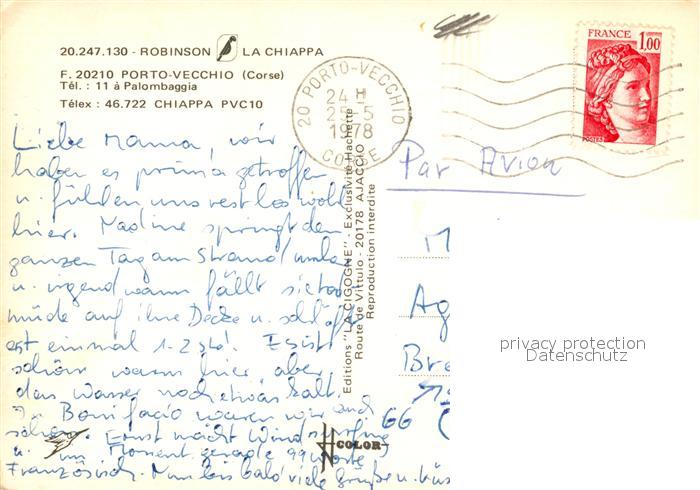 20.247.130 - ROBINSON LA CHIAPPA
F. 20210 PORTO-VECCHIO (Corse)
Tél. : 11 à Palombaggia
Télex : 46.722 CHIAPPA PVC10
FRANCE 1,00
POSTES
20 PORTO-VECCHIO
24 H
25-5
1978
CORSE
Par Avion
Liebe Mama, wir
haben es prima getroffen
u. fühlen uns restlos wohl
hier. Nadine springt den
ganzen Tag am Strand
u. irgendwann fällt sie tot
müde auf ihre Decke u. schläft
erst einmal 1-2 Std! Es ist
schön warm hier aber
das Wasser noch etwas kalt.
In Bonifacio waren wir auch
schon. Ernst macht Windsurfing
u. im Moment gerade Worte
Französisch. Nun bis bald viele Grüße u. Küs
Editions "LA CIGOGNE" - Exclusivité Hachette
Route de Vittulo - 20178 AJACCIO
Reproduction interdite
M
Ag
Bre
66
COLOR
privacy protection
Datenschutz